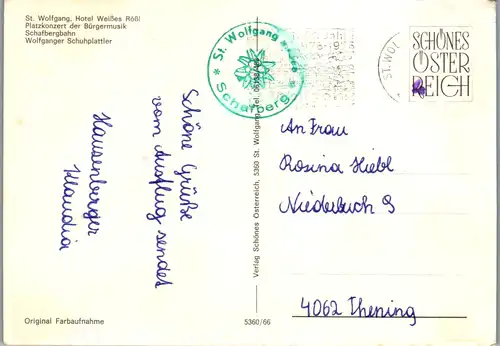 St. Wolfgang, Hotel Weißes Rößl
Platzkonzert der Bürgermusik
Schafbergbahn
Wolfganger Schuhplattler
* St. Wolfgang *
Schafberg
ST. WOL
SCHÖNES
ÖSTER
REICH
Schöne Grüße
vom Ausflug sendet
Hausenberger
Klaudia
An Frau
Rosina Hiebl
Niederbuch 9
4062 Thening
Verlag Schönes Österreich, 5360 St. Wolfgang, Tel.
Original Farbaufnahme
5360/66